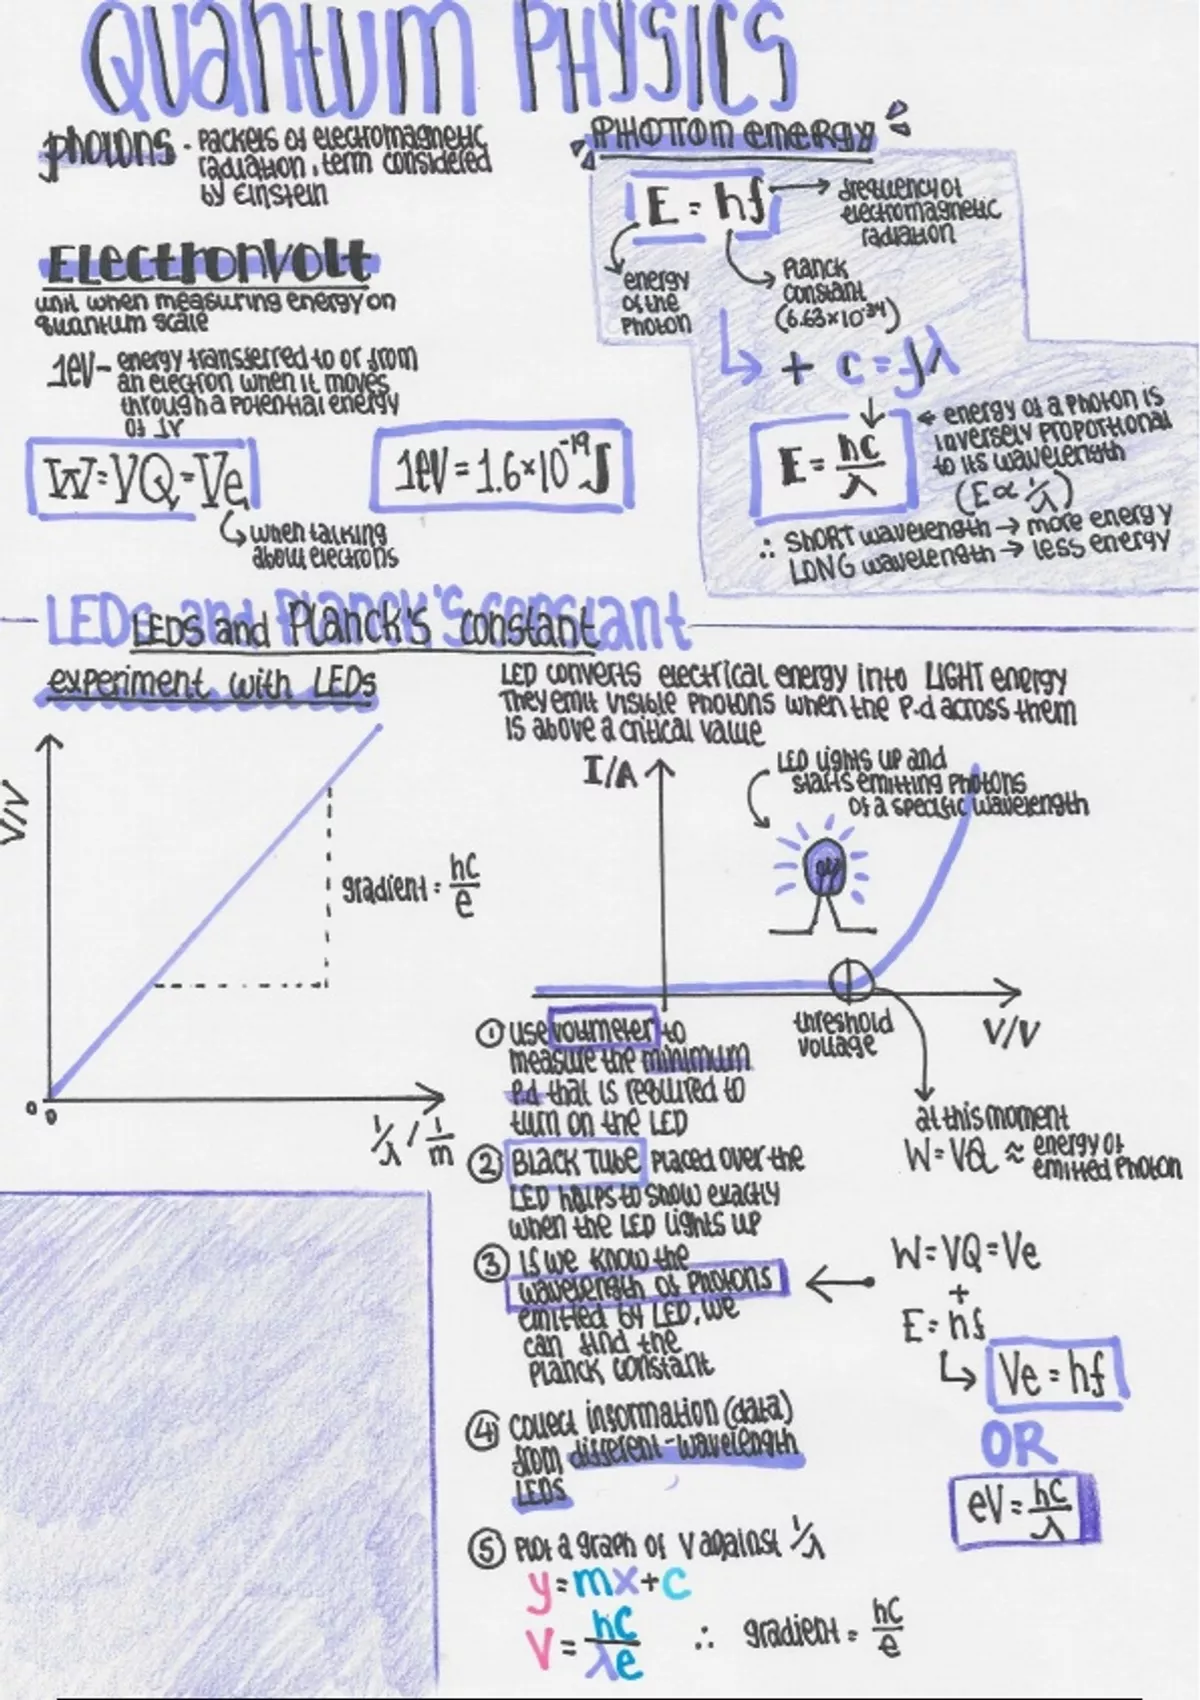 QUANTUM PHYSICS
photons - packets of electromagnetic
radiation, term considered
by Einstein
Electronvolt
unit when measuring energy on
quantum scale
1eV - energy transferred to or from
an electron when it moves
through a potential energy
of 1V
W=VQ=Ve
↳ when talking
about electrons
1eV = 1.6×10⁻¹⁹J
PHOTON energy
E = hf → frequency of
electromagnetic
radiation
energy
of the
photon
Planck
constant
(6.63×10⁻³⁴)
↳ + c = fλ
E = hc/λ
← energy of a photon is
inversely proportional
to its wavelength
(E ∝ 1/λ)
∴ SHORT wavelength → more energy
LONG wavelength → less energy
LEDs and Planck's constant
LEDs and Planck's constant
experiment with LEDs
V/V
gradient = hc/e
0
0
1/λ / 1/m
LED converts electrical energy into LIGHT energy
They emit visible photons when the p.d across them
is above a critical value
I/A
LED lights up and
starts emitting photons
of a specific wavelength
threshold
voltage
V/V
at this moment
W=VQ ≈ energy of
emitted photon
① use voltmeter to
measure the minimum
p.d that is required to
turn on the LED
② BLACK TUBE placed over the
LED helps to show exactly
when the LED lights up
③ If we know the
wavelength of photons
emitted by LED, we
can find the
Planck constant
④ collect information (data)
from different-wavelength
LEDs
⑤ Plot a graph of V against 1/λ
y=mx+c
V = hc/λe ∴ gradient = hc/e
W=VQ=Ve
+
E=hf
↳ Ve = hf
OR
eV = hc/λ